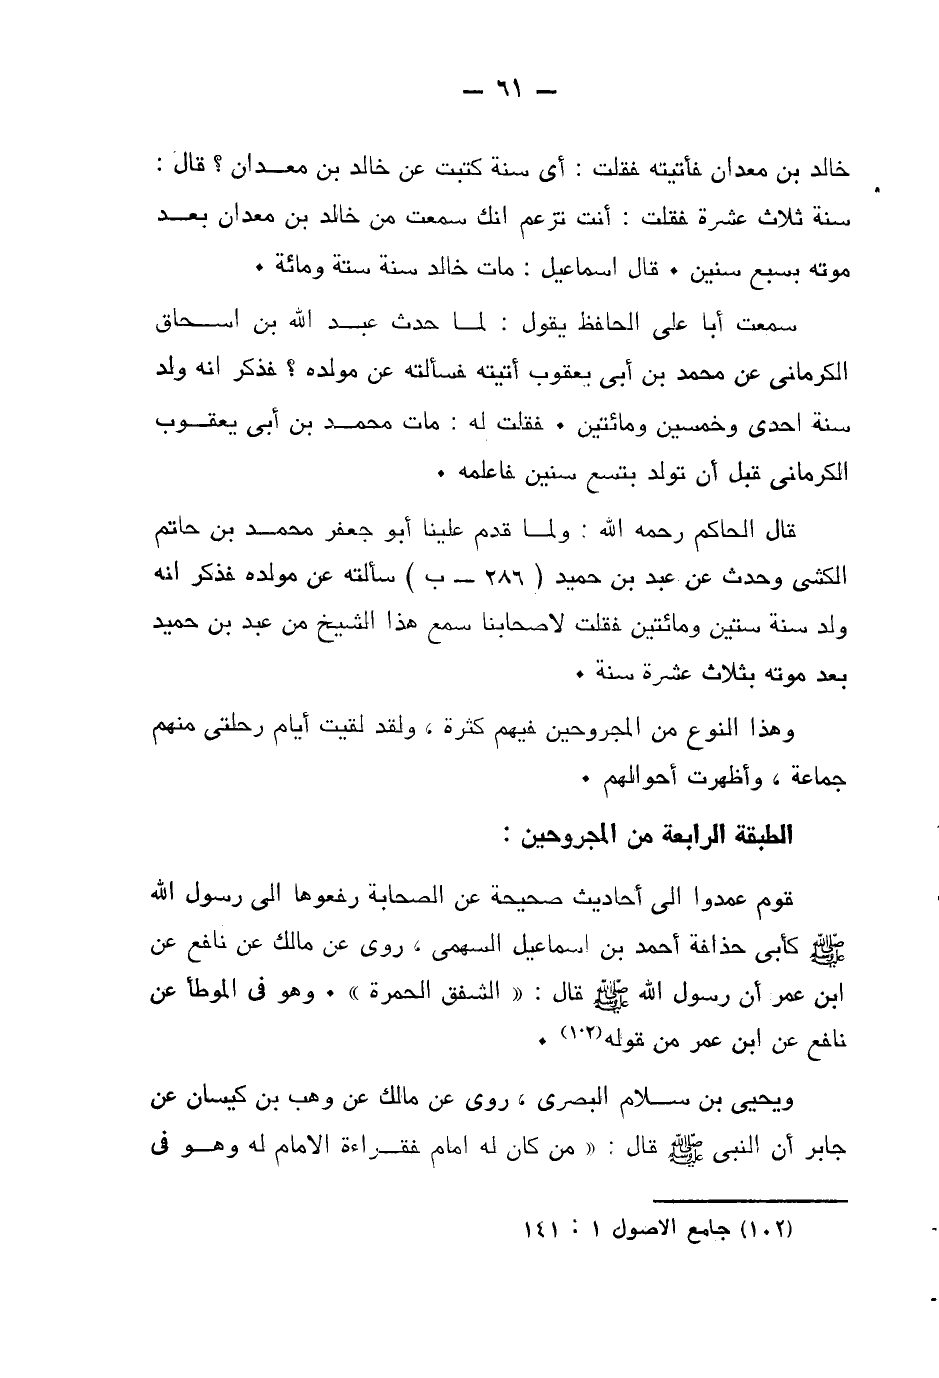 — ٦١ —
خالد بن معدان فأتيته فقلت : أى سنة كتبت عن خالد بن معدان ؟ قال :
سنة ثلاث عشرة فقلت : أنت تزعم انك سمعت من خالد بن معدان بعد
موته بسبع سنين ٠ قال اسماعيل : مات خالد سنة ستة ومائة ٠
سمعت أبا على الحافظ يقول : لما حدث عبد الله بن اسحاق
الكرمانى عن محمد بن أبى يعقوب أتيته فسألته عن مولده ؟ فذكر انه ولد
سنة احدى وخمسين ومائتين ٠ فقلت له : مات محمد بن أبى يعقوب
الكرمانى قبل أن تولد بتسع سنين فاعلمه ٠
قال الحاكم رحمه الله : ولما قدم علينا أبو جعفر محمد بن حاتم
الكشى وحدث عن عبد بن حميد ( ٢٨٦ — ب ) سألته عن مولده فذكر انه
ولد سنة ستين ومائتين فقلت لاصحابنا سمع هذا الشيخ من عبد بن حميد
بعد موته بثلاث عشرة سنة ٠
وهذا النوع من المجروحين فيهم كثرة ، ولقد لقيت أيام رحلتى منهم
جماعة ، وأظهرت أحوالهم ٠
الطبقة الرابعة من المجروحين :
قوم عمدوا الى أحاديث صحيحة عن الصحابة رفعوها الى رسول الله
ﷺ كأبى حذافة أحمد بن اسماعيل السهمى ، روى عن مالك عن نافع عن
ابن عمر أن رسول الله ﷺ قال : « الشفق الحمرة » ٠ وهو فى الموطأ عن
نافع عن ابن عمر من قوله(١٠٢) ٠
ويحيى بن سلام البصرى ، روى عن مالك عن وهب بن كيسان عن
جابر أن النبى ﷺ قال : « من كان له امام فقراءة الامام له وهو فى
(١٠٢) جامع الاصول ١ : ١٤١